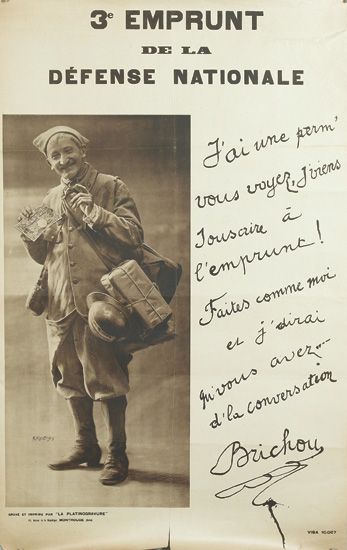 3e EMPRUNT
DE LA
DÉFENSE NATIONALE
J'ai une perm'
vous voyez, J'viens
Souscrire à
l'emprunt!
Faites comme moi
et j'dirai
qu'vous avez....
d'la conversation
Brichou
GRAVÉ ET IMPRIMÉ PAR "LA PLATINOGRAVURE"
MONTROUGE
VISA 10.067